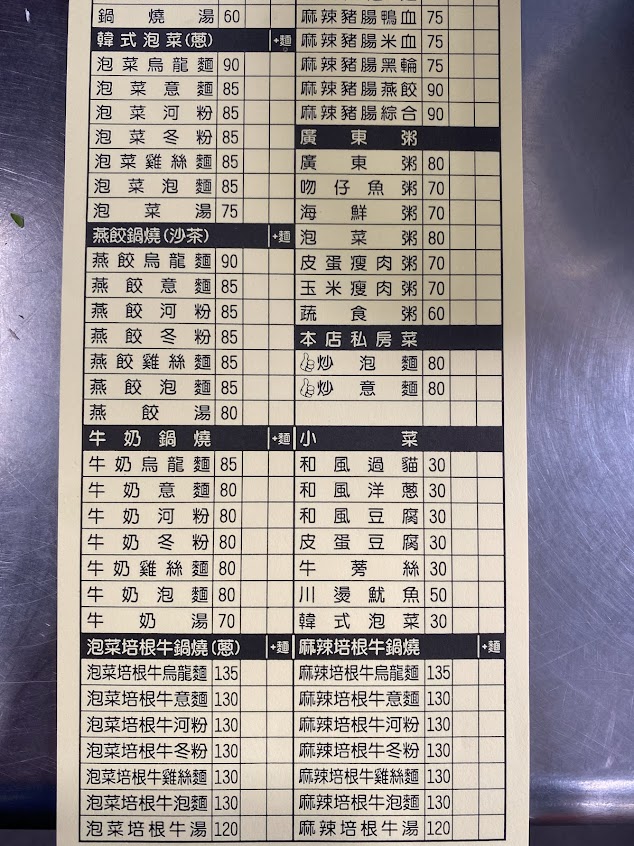 鍋燒湯 60
韓式泡菜(蔥) +麵
泡菜烏龍麵 90
泡菜意麵 85
泡菜河粉 85
泡菜冬粉 85
泡菜雞絲麵 85
泡菜泡麵 85
泡菜湯 75
燕餃鍋燒(沙茶) +麵
燕餃烏龍麵 90
燕餃意麵 85
燕餃河粉 85
燕餃冬粉 85
燕餃雞絲麵 85
燕餃泡麵 85
燕餃湯 80
牛奶鍋燒 +麵
牛奶烏龍麵 85
牛奶意麵 80
牛奶河粉 80
牛奶冬粉 80
牛奶雞絲麵 80
牛奶泡麵 80
牛奶湯 70
泡菜培根牛鍋燒(蔥) +麵
泡菜培根牛烏龍麵 135
泡菜培根牛意麵 130
泡菜培根牛河粉 130
泡菜培根牛冬粉 130
泡菜培根牛雞絲麵 130
泡菜培根牛泡麵 130
泡菜培根牛湯 120
麻辣豬腸鴨血 75
麻辣豬腸米血 75
麻辣豬腸黑輪 75
麻辣豬腸燕餃 90
麻辣豬腸綜合 90
廣東粥
廣東粥 80
吻仔魚粥 70
海鮮粥 70
泡菜粥 80
皮蛋瘦肉粥 70
玉米瘦肉粥 70
蔬食粥 60
本店私房菜
炒泡麵 80
炒意麵 80
小菜
和風過貓 30
和風洋蔥 30
和風豆腐 30
皮蛋豆腐 30
牛蒡絲 30
川燙魷魚 50
韓式泡菜 30
麻辣培根牛鍋燒 +麵
麻辣培根牛烏龍麵 135
麻辣培根牛意麵 130
麻辣培根牛河粉 130
麻辣培根牛冬粉 130
麻辣培根牛雞絲麵 130
麻辣培根牛泡麵 130
麻辣培根牛湯 120